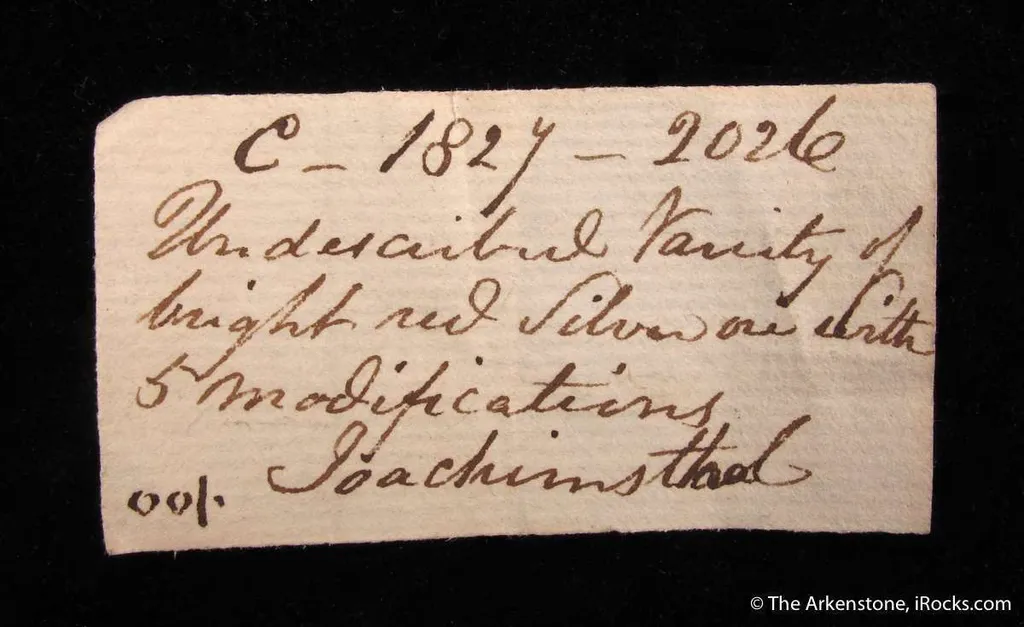 C - 1827 - 2026
Undescribed Variety of
bright red Silver ore with
5 modifications
Joachimsthal
© The Arkenstone, iRocks.com